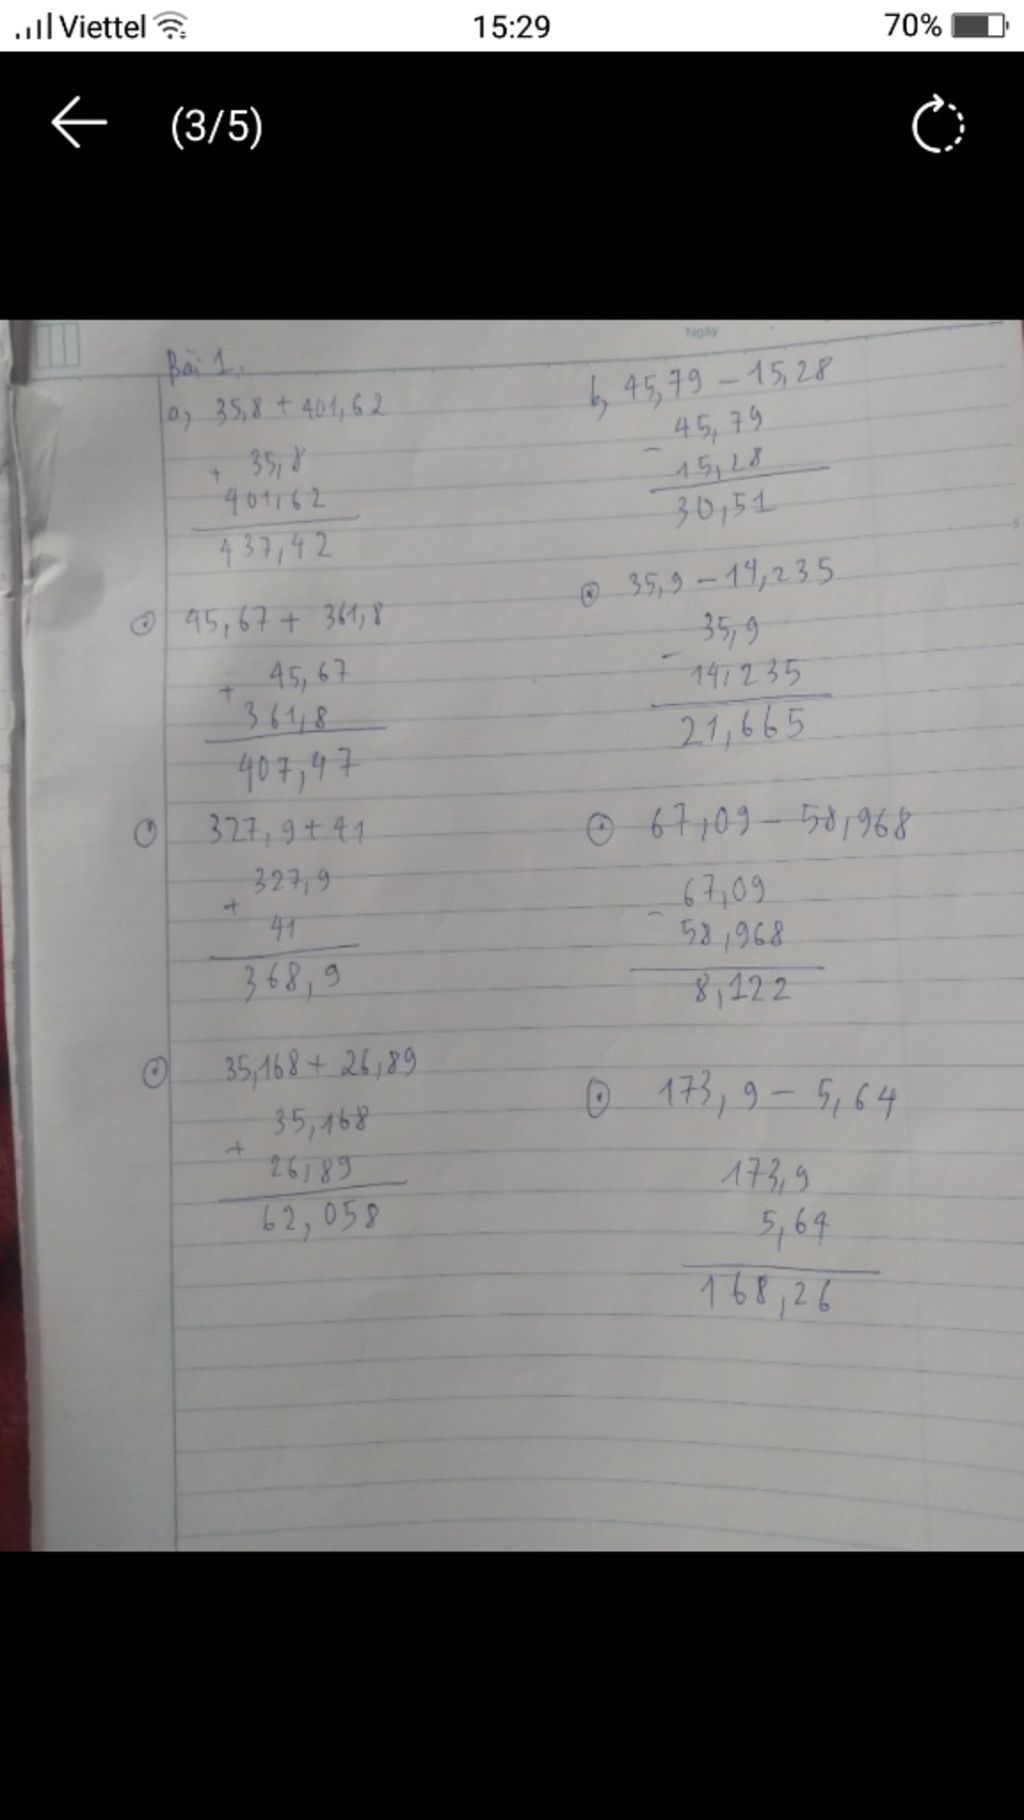 Viettel 15:29 70%
(3/5)
Ngày
Bài 1.
a, 35,8 + 401,62
+ 35,8
401,62
437,42
45,67 + 361,8
+ 45,67
361,8
407,47
327,9 + 41
+ 327,9
41
368,9
35,168 + 26,89
+ 35,168
26,89
62,058
b, 45,79 - 15,28
- 45,79
15,28
30,51
35,9 - 14,235
- 35,9
14,235
21,665
67,09 - 58,968
- 67,09
58,968
8,122
173,9 - 5,64
173,9
5,64
168,26